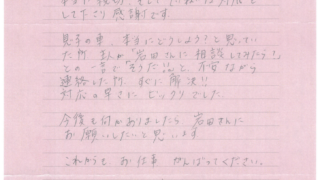 して下さり感謝です。
見学の束、本当にどうしようと思ってい
た所、主人が「岩田さんに相談してみたら！」
との一言で「そうだ!!」と、不安ながら
連絡した所、すぐに解決!!
対応の早さにビックリでした
今後も何かありましたら岩田さんに
お願いしたいと思います
これからも お仕事 がんばってください。